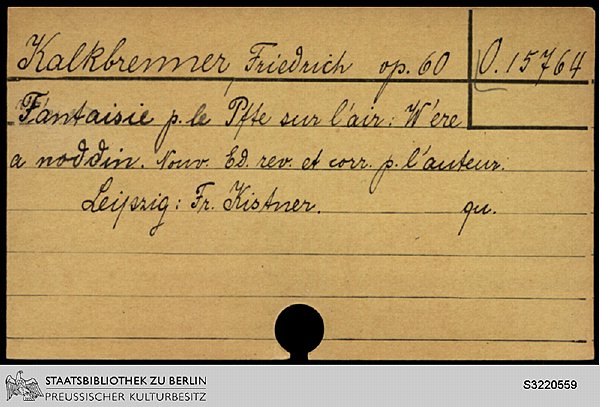 Kalkbrenner, Friedrich op. 60 O. 15764
Fantaisie p. le Pfte sur l'air: We're
a noddin. Nouv. Ed. rev. et corr. p. l'auteur.
Leipzig: Fr. Kistner. qu.
STAATSBIBLIOTHEK ZU BERLIN
PREUSSISCHER KULTURBESITZ
S3220559